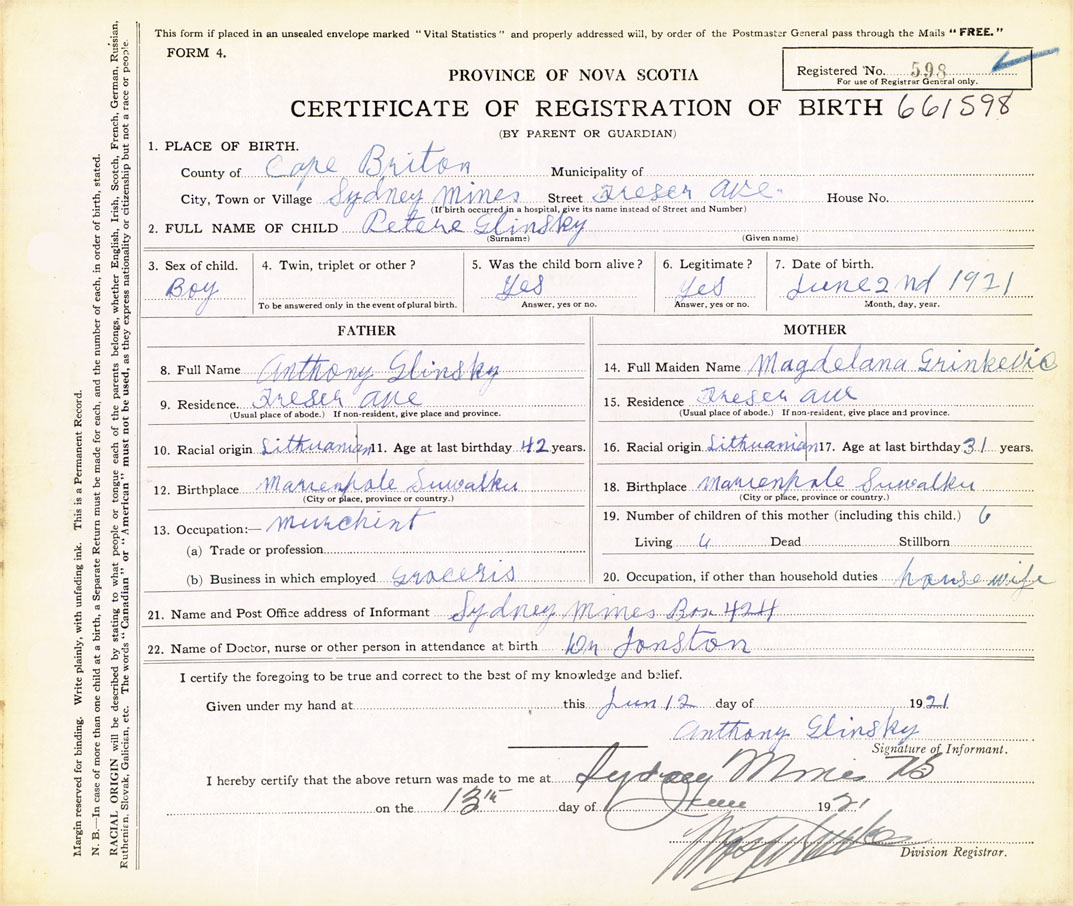 This form if placed in an unsealed envelope marked "Vital Statistics" and properly addressed will, by order of the Postmaster General pass through the Mails "FREE."
FORM 4.
Registered No. 598
For use of Registrar General only.
PROVINCE OF NOVA SCOTIA
CERTIFICATE OF REGISTRATION OF BIRTH 661598
(BY PARENT OR GUARDIAN)
1. PLACE OF BIRTH.
County of Cape Briton Municipality of
City, Town or Village Sydney Mines Street Freser ave. House No.
(If birth occurred in a hospital, give its name instead of Street and Number)
2. FULL NAME OF CHILD Petere Glinsky
(Surname) (Given name)
3. Sex of child. 4. Twin, triplet or other? 5. Was the child born alive? 6. Legitimate? 7. Date of birth.
Boy Yes Yes June 2nd 1921
To be answered only in the event of plural birth. Answer, yes or no. Answer, yes or no. Month, day, year.
FATHER
8. Full Name Anthony Glinsky
9. Residence. Freser ave
(Usual place of abode.) If non-resident, give place and province.
10. Racial origin Lithuanian 11. Age at last birthday 42 years.
12. Birthplace Marienpole Suwalku
(City or place, province or country.)
13. Occupation:— Murchint
(a) Trade or profession
(b) Business in which employed Groceris
MOTHER
14. Full Maiden Name Magdelana Grinkevic
15. Residence Freser ave
(Usual place of abode.) If non-resident, give place and province.
16. Racial origin Lithuanian 17. Age at last birthday 31 years.
18. Birthplace Marienpole Suwalku
(City or place, province or country.)
19. Number of children of this mother (including this child.) 6
Living Dead Stillborn
20. Occupation, if other than household duties house wife
21. Name and Post Office address of Informant Sydney Mines Box 424
22. Name of Doctor, nurse or other person in attendance at birth Dr Jonston
I certify the foregoing to be true and correct to the best of my knowledge and belief.
Given under my hand at this Jun 12 day of 1921
Anthony Glinsky
Signature of Informant.
I hereby certify that the above return was made to me at Sydney Mines NS
on the 13th day of June 1921
Division Registrar.
Margin reserved for binding. Write plainly, with unfading ink. This is a Permanent Record.
N. B.—In case of more than one child at a birth, a Separate Return must be made for each, and the number of each, in order of birth, stated.
RACIAL ORIGIN will be described by stating to what people or tongue each of the parents belongs, whether English, Irish, Scotch, French, German, Russian,
Ruthenian, Slovak, Galician, etc. The words "Canadian" or "American" must not be used, as they express nationality or citizenship but not a race or people.